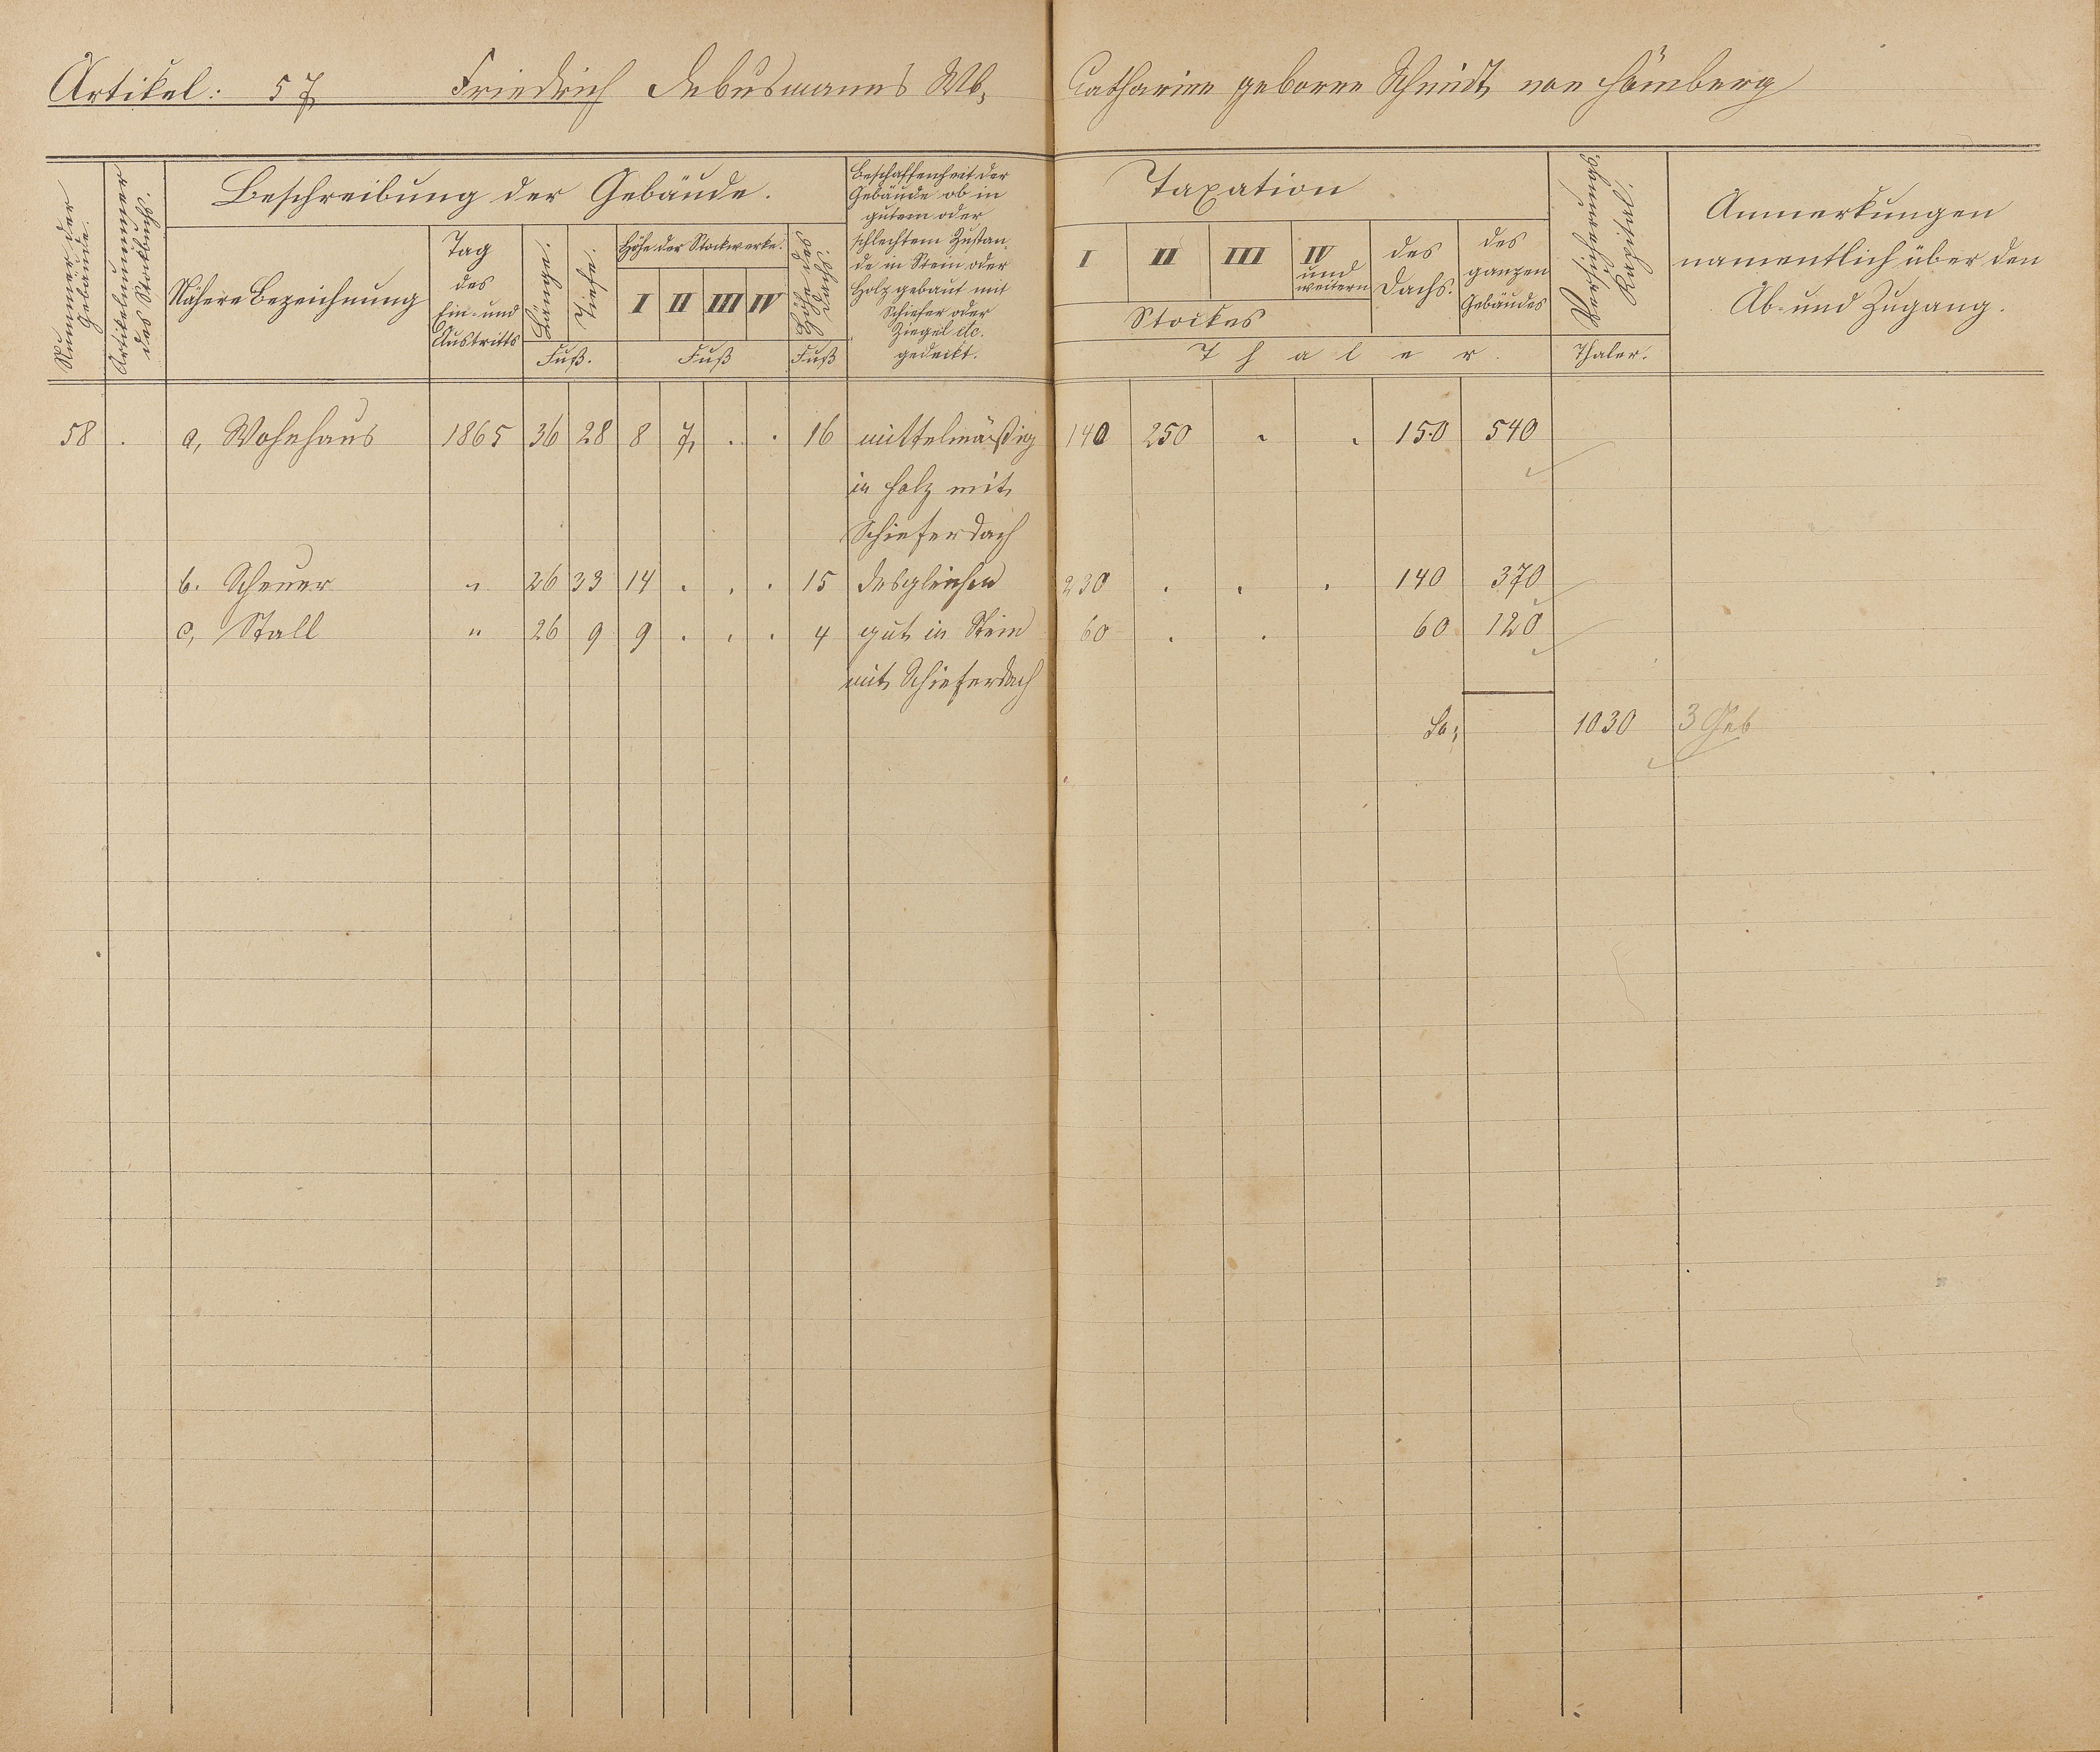 Artikel: 57 Friedrich Debusmanns Wb, Catharine geborne Schmidt von Hömberg
Nummer der Gebäude.
Artikelnummer des Stockbuchs.
Beschreibung der Gebäude.
Nähere Bezeichnung
Tag
des
Ein- und
Austritts
Länge.
Tiefe.
Fuß.
Höhe der Stockwerke.
I II III IV
Fuß
Höhe des Dachs.
Fuß
Beschaffenheit der
Gebäude ob in
gutem oder
schlechtem Zustan-
de in Stein oder
Holz gebaut mit
Schiefer oder
Ziegel etc.
gedeckt.
Taxation
I II III IV
und
weitern
Stockes
des
Dachs.
des
ganzen
Gebäudes
Thaler.
Versicherungs Kapital.
Thaler.
Anmerkungen
namentlich über den
Ab- und Zugang.
58 . a, Wohnhaus 1865 36 28 8 7 . . 16 mittelmäßig 140 250 . . 150 540
in Holz mit
Schieferdach
b. Scheuer " 26 33 14 . . . 15 desgleichen 230 . . . 140 370
c, Stall " 26 9 9 . . . 4 gut in Stein 60 . . 60 120
mit Schieferdach
Sa; 1030 3 Geb